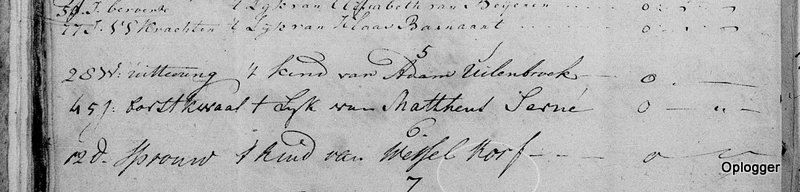 59 J. beroerte 't Lyk van Elisabeth van Beijeren o
77 J. VS Krachten 't Lyk van Klaas Barnaart o
5
28 W: uittering 't kind van Adam Uilenbroek o
45 J: borstkwaal t Lyk van Mattheus Serné o "
6.
12 d. Sprouw 't kind van Wessel Korf o
7
Oplogger